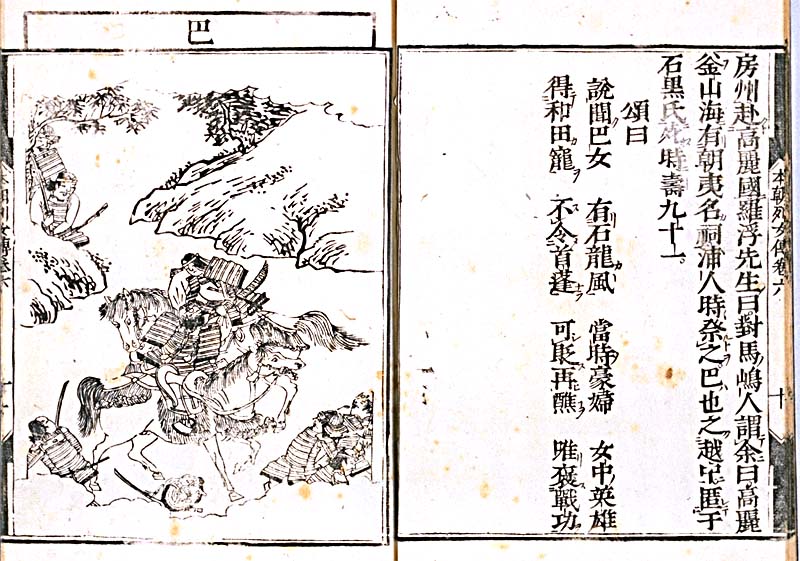 本朝列女傳卷六
十
房州赴高麗國羅浮先生曰對馬嶋人謂余曰高麗
釜山海有朝夷名祠浦人時祭之巴也之越中匿于
石黒氏死時壽九十一。
頌曰
說聞巴女 有石龍風 當時豪婦 女中英雄
得和田寵 不令首蓬 可貶再醮 唯褒戰功
巴
本朝列女傳卷六